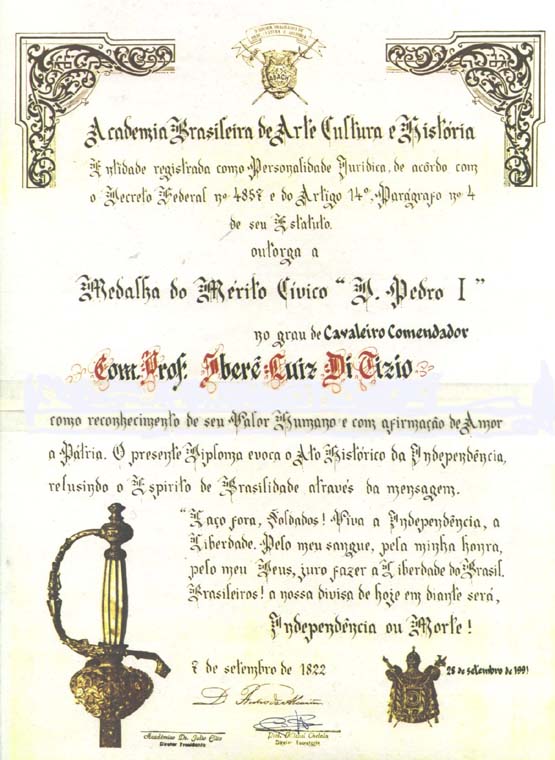 Academia Brasileira de Arte Cultura e História
Entidade registrada como Personalidade Jurídica, de acôrdo com
o Decreto Federal nº 4857 e do Artigo 14º, Parágrafo nº 4
de seu Estatuto.
outorga a
Medalha do Mérito Cívico "D. Pedro I"
no grau de Cavaleiro Comendador
Com. Prof. Iberê Luiz Di Tizio
como reconhecimento de seu Valor Humano e com afirmação de Amor
a Pátria. O presente Diploma evoca o Ato Histórico da Independência,
refusindo o Espírito de Brasilidade através da mensagem.
"Laço fora, Soldados! Viva a Independência, a
Liberdade. Pelo meu sangue, pela minha honra,
pelo meu Deus, juro fazer a Liberdade do Brasil.
Brasileiros! a nossa divisa de hoje em diante será,
Independência ou Morte!
7 de setembro de 1822
28 de setembro de 1991
Acadêmico Dr. Julio
Diretor Presidente
Diretor